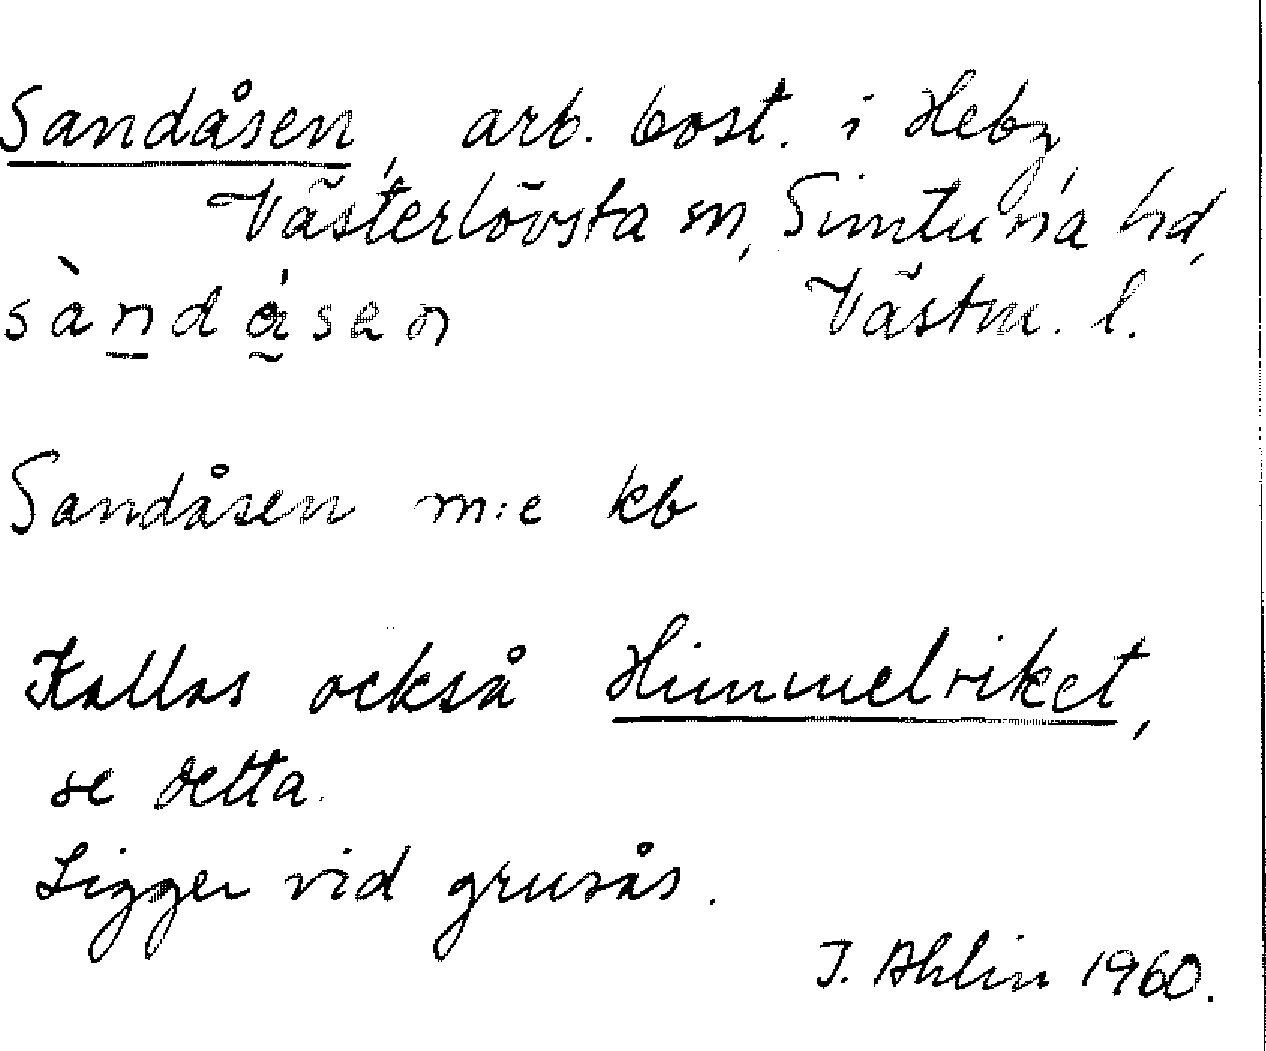 Sandåsen, arb. bost. i Heby
Västerlövsta sn, Simtuna hd,
sàndåsen Västm. l.
Sandåsen m:e kb
Kallas också Himmelriket,
se detta.
Ligger vid grusås.
J. Ahlin 1960.